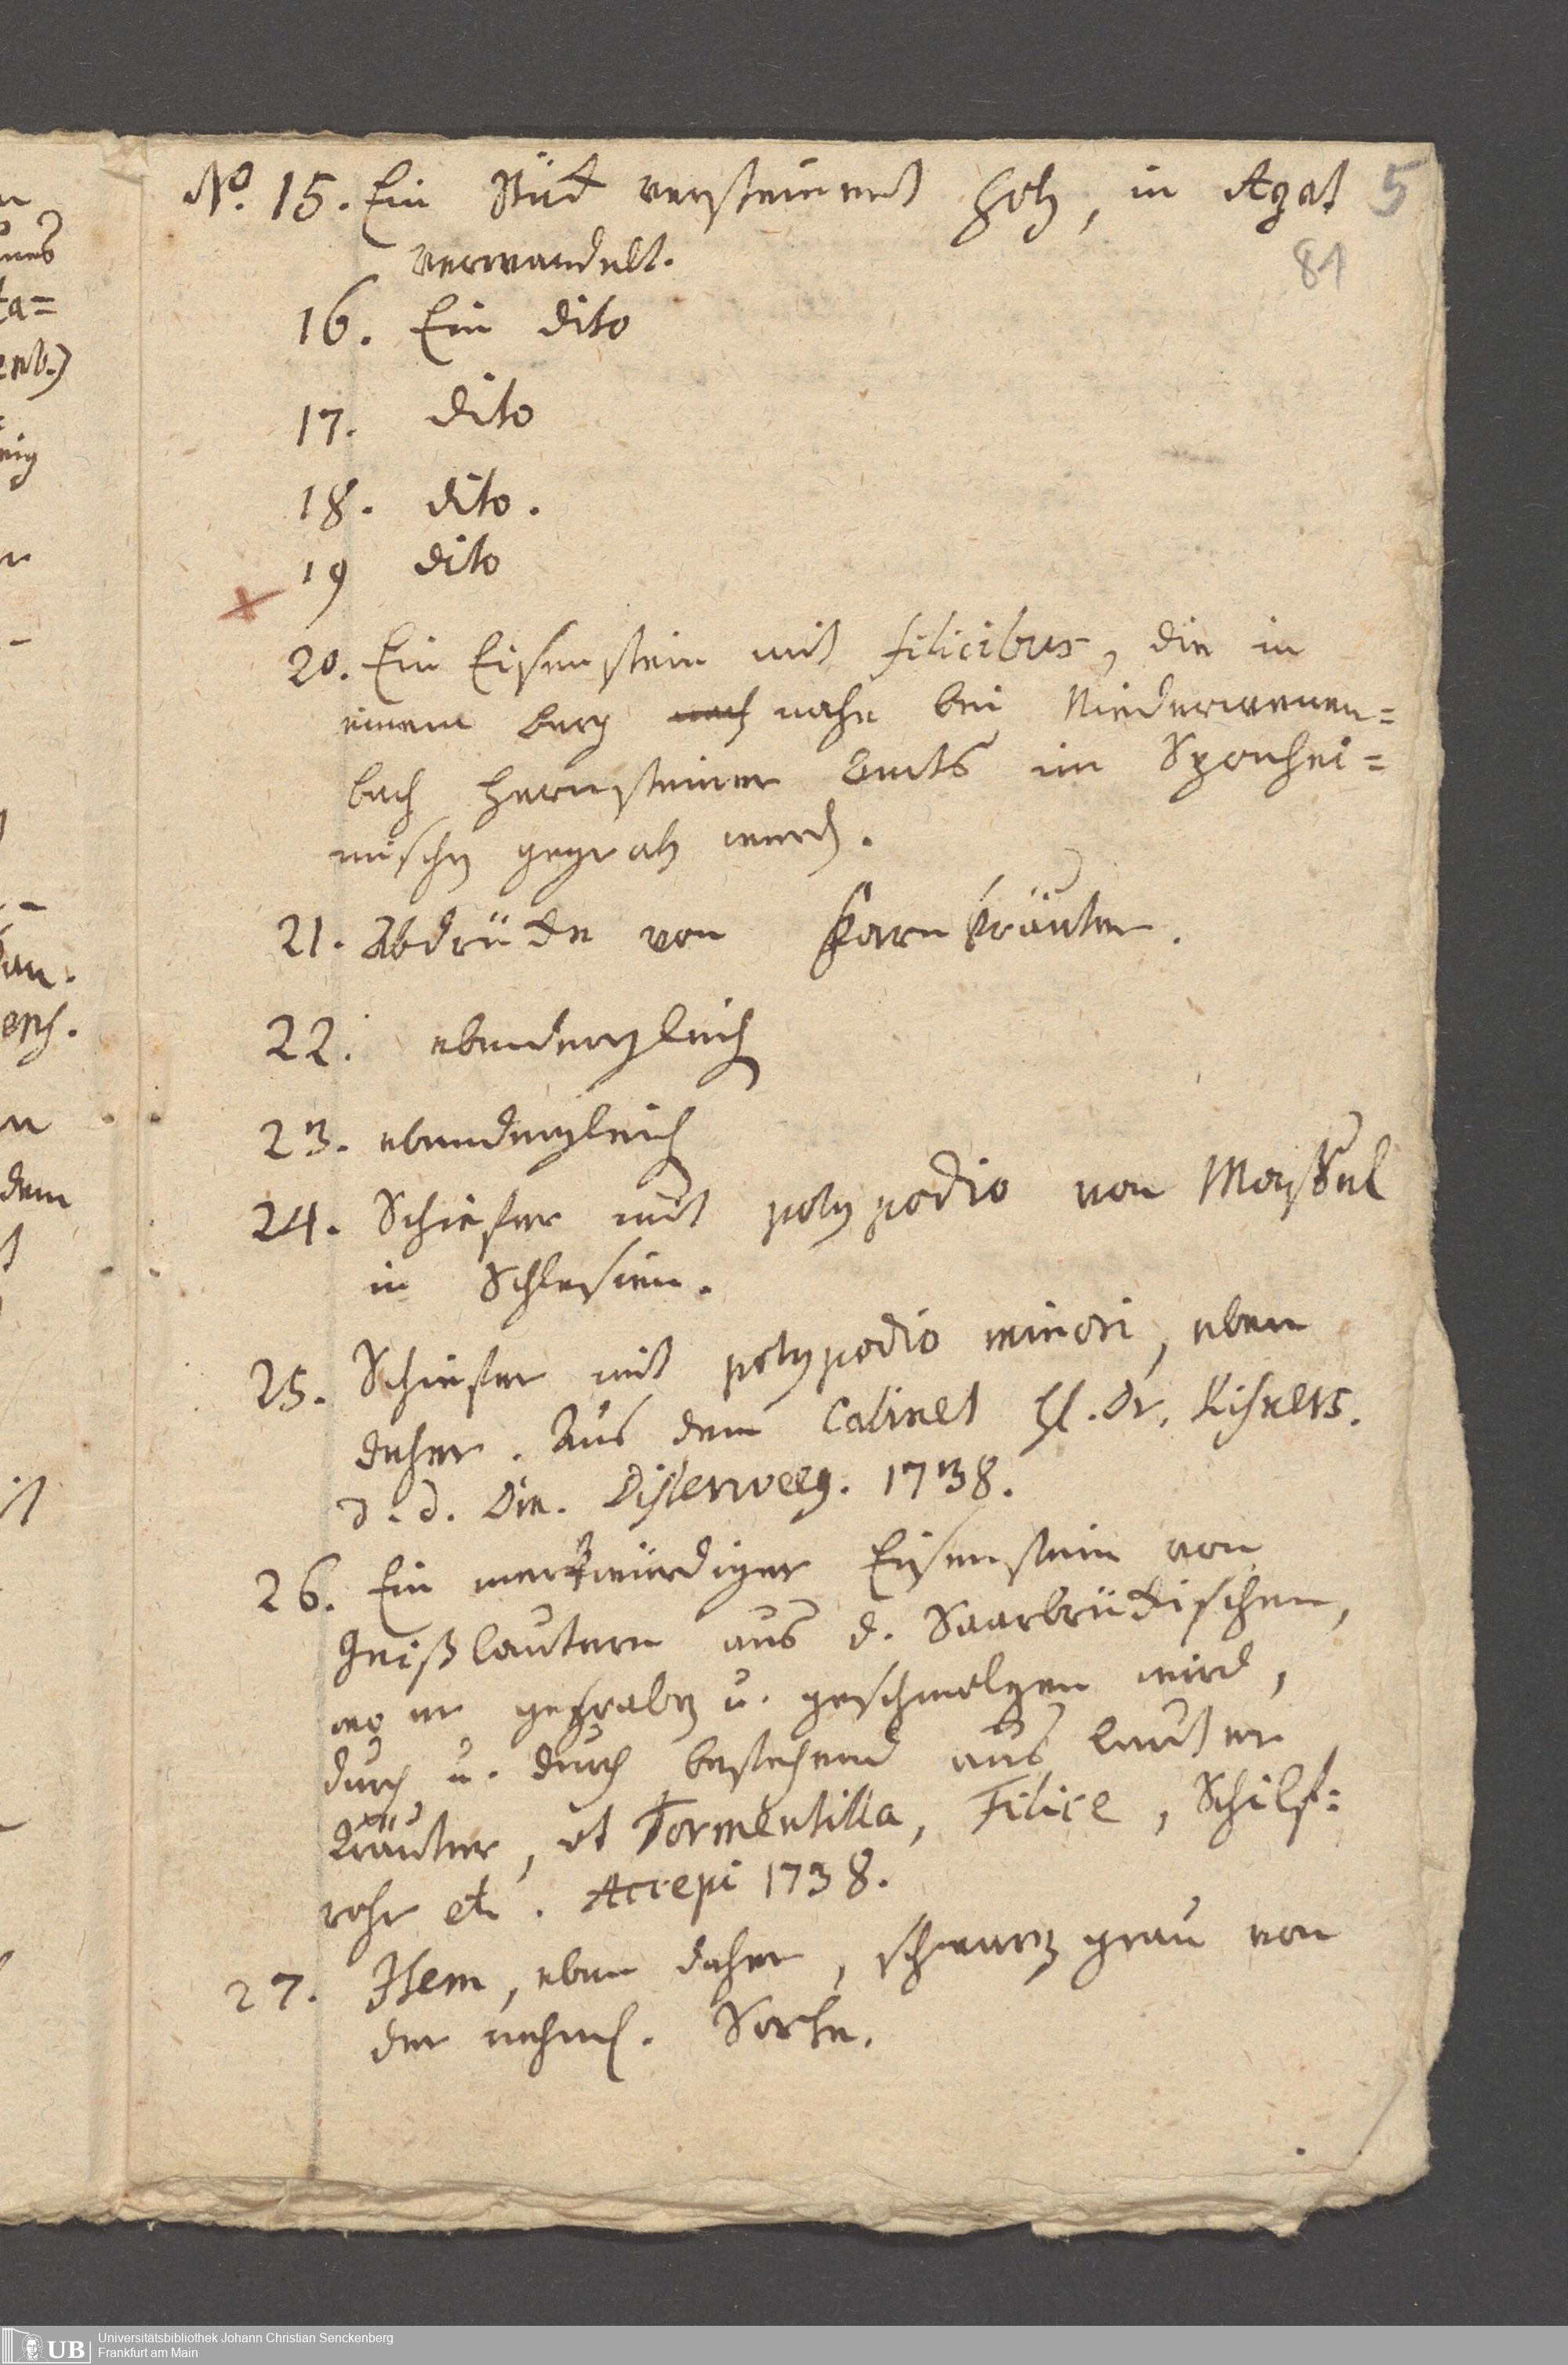 No. 15. Ein Stück versteinert Holz, in Agat 5
verwandelt. 81
16. Ein dito
17. dito
18. dito.
19 dito
20. Ein Eisenstein mit filicibus, die in
einem berg nach nahe bei Niederweuer=
bach Herrsteiner Amts im Sponhei=
mischen gegraben werden.
21. Abdrücke von Farnkräuter.
22. ebendergleich
23. ebendergleich
24. Schiefer mit polypodio von Mayssel
in Schlesien.
25. Schiefer mit polypodio minori, eben
daher. Aus dem Cabinet H. Dr. Kisners.
d. d. Dn. Disterweeg. 1738.
26. Ein merckwürdiger Eisenstein von
Geißlautern aus d. Saarbrückischen,
wo er gegraben u. geschmolzen wird,
durch u. durch bestehend aus lauter
Kräuter, ut Tormentilla, Filice, Schilf=
rohr etc. Accepi 1738.
27. Item, eben daher, schwarz grau von
der nehml. Sorte.
n
nes
ta=
enb.)
eig
n
an.
dem
Universitätsbibliothek Johann Christian Senckenberg
UB Frankfurt am Main